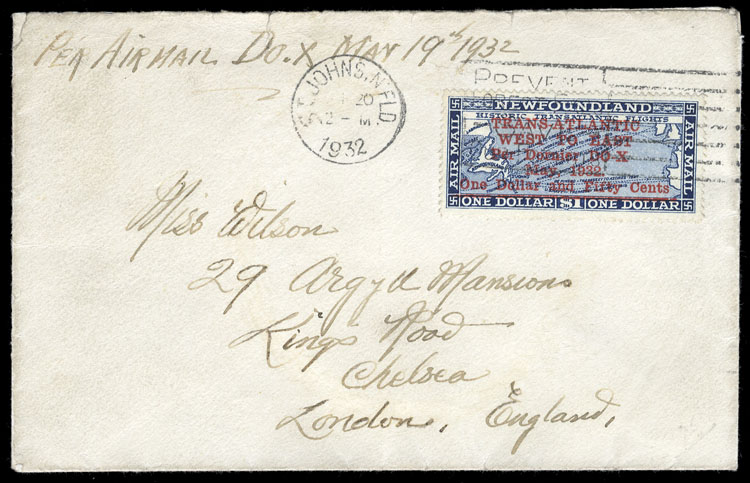 Per Airmail Do.X May 19th 1932
ST. JOHN'S, NFLD.
20
2 - M.
1932
PREVENT
NEWFOUNDLAND
HISTORIC TRANSATLANTIC FLIGHTS
AIR MAIL
AIR MAIL
TRANS-ATLANTIC
WEST TO EAST
Per Dornier DO-X
May, 1932.
One Dollar and Fifty Cents
ONE DOLLAR $1 ONE DOLLAR
Miss Wilson
29 Argyll Mansions
King's Road
Chelsea
London, England,